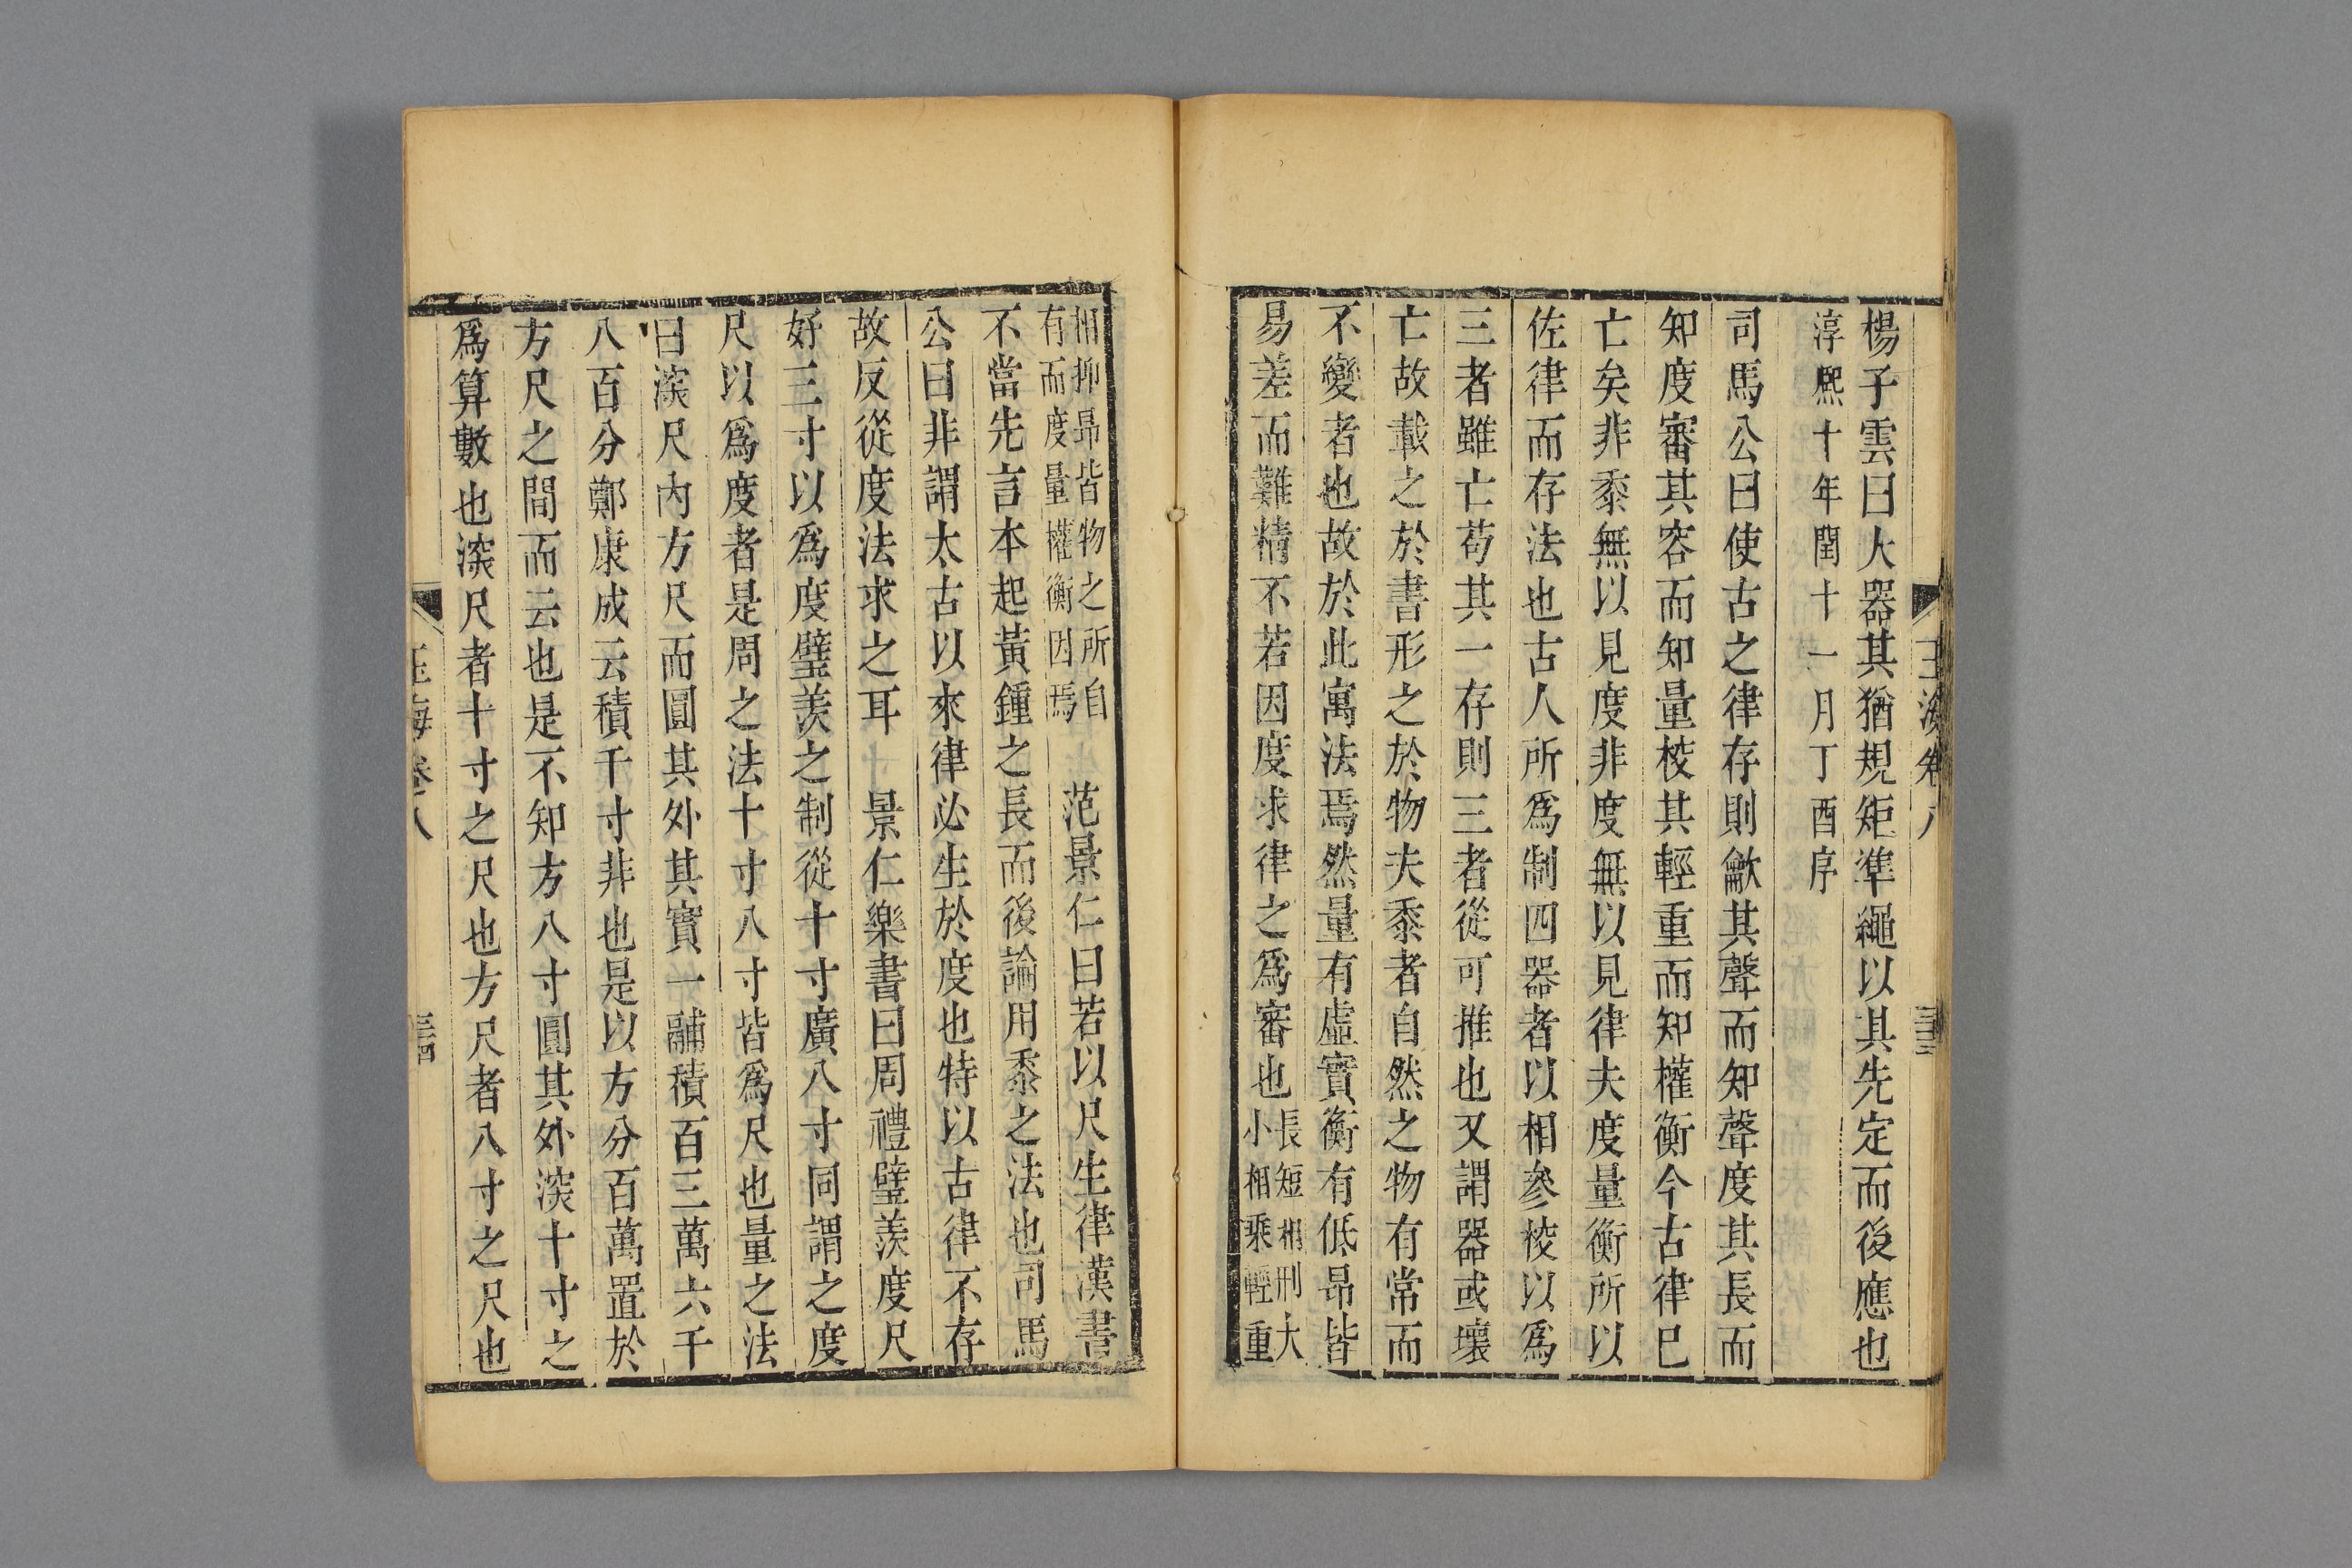 玉海卷八
楊子雲曰大器其猶規矩準繩以其先定而後應也
淳熈十年閏十一月丁酉序
司馬公曰使古之律存則龡其聲而知聲度其長而
知度審其容而知量校其輕重而知權衡今古律巳
亡矣非黍無以見度非度無以見律夫度量衡所以
佐律而存法也古人所爲制四器者以相參校以爲
三者雖亡苟其一存則三者從可推也又謂器或壞
亡故載之於書形之於物夫黍者自然之物有常而
不變者也故於此寓法焉然量有虛實衡有低昻皆
易差而難精不若因度求律之爲審也長短相形大
小相乘輕重
相抑昻皆物之所自
有而度量權衡因焉
范景仁曰若以尺生律漢書
不當先言本起黃鍾之長而後論用黍之法也司馬
公曰非謂太古以來律必生於度也特以古律不存
故反從度法求之耳 景仁樂書曰周禮璧羡度尺
好三寸以爲度璧羡之制從十寸廣八寸同謂之度
尺以爲度者是周之法十寸八寸皆爲尺也量之法
曰深尺內方尺而圓其外其實一鬴積百三萬六千
八百分鄭康成云積千寸非也是以方分百萬置於
方尺之間而云也是不知方八寸圓其外深十寸之
爲算數也深尺者十寸之尺也方尺者八寸之尺也
玉海卷八